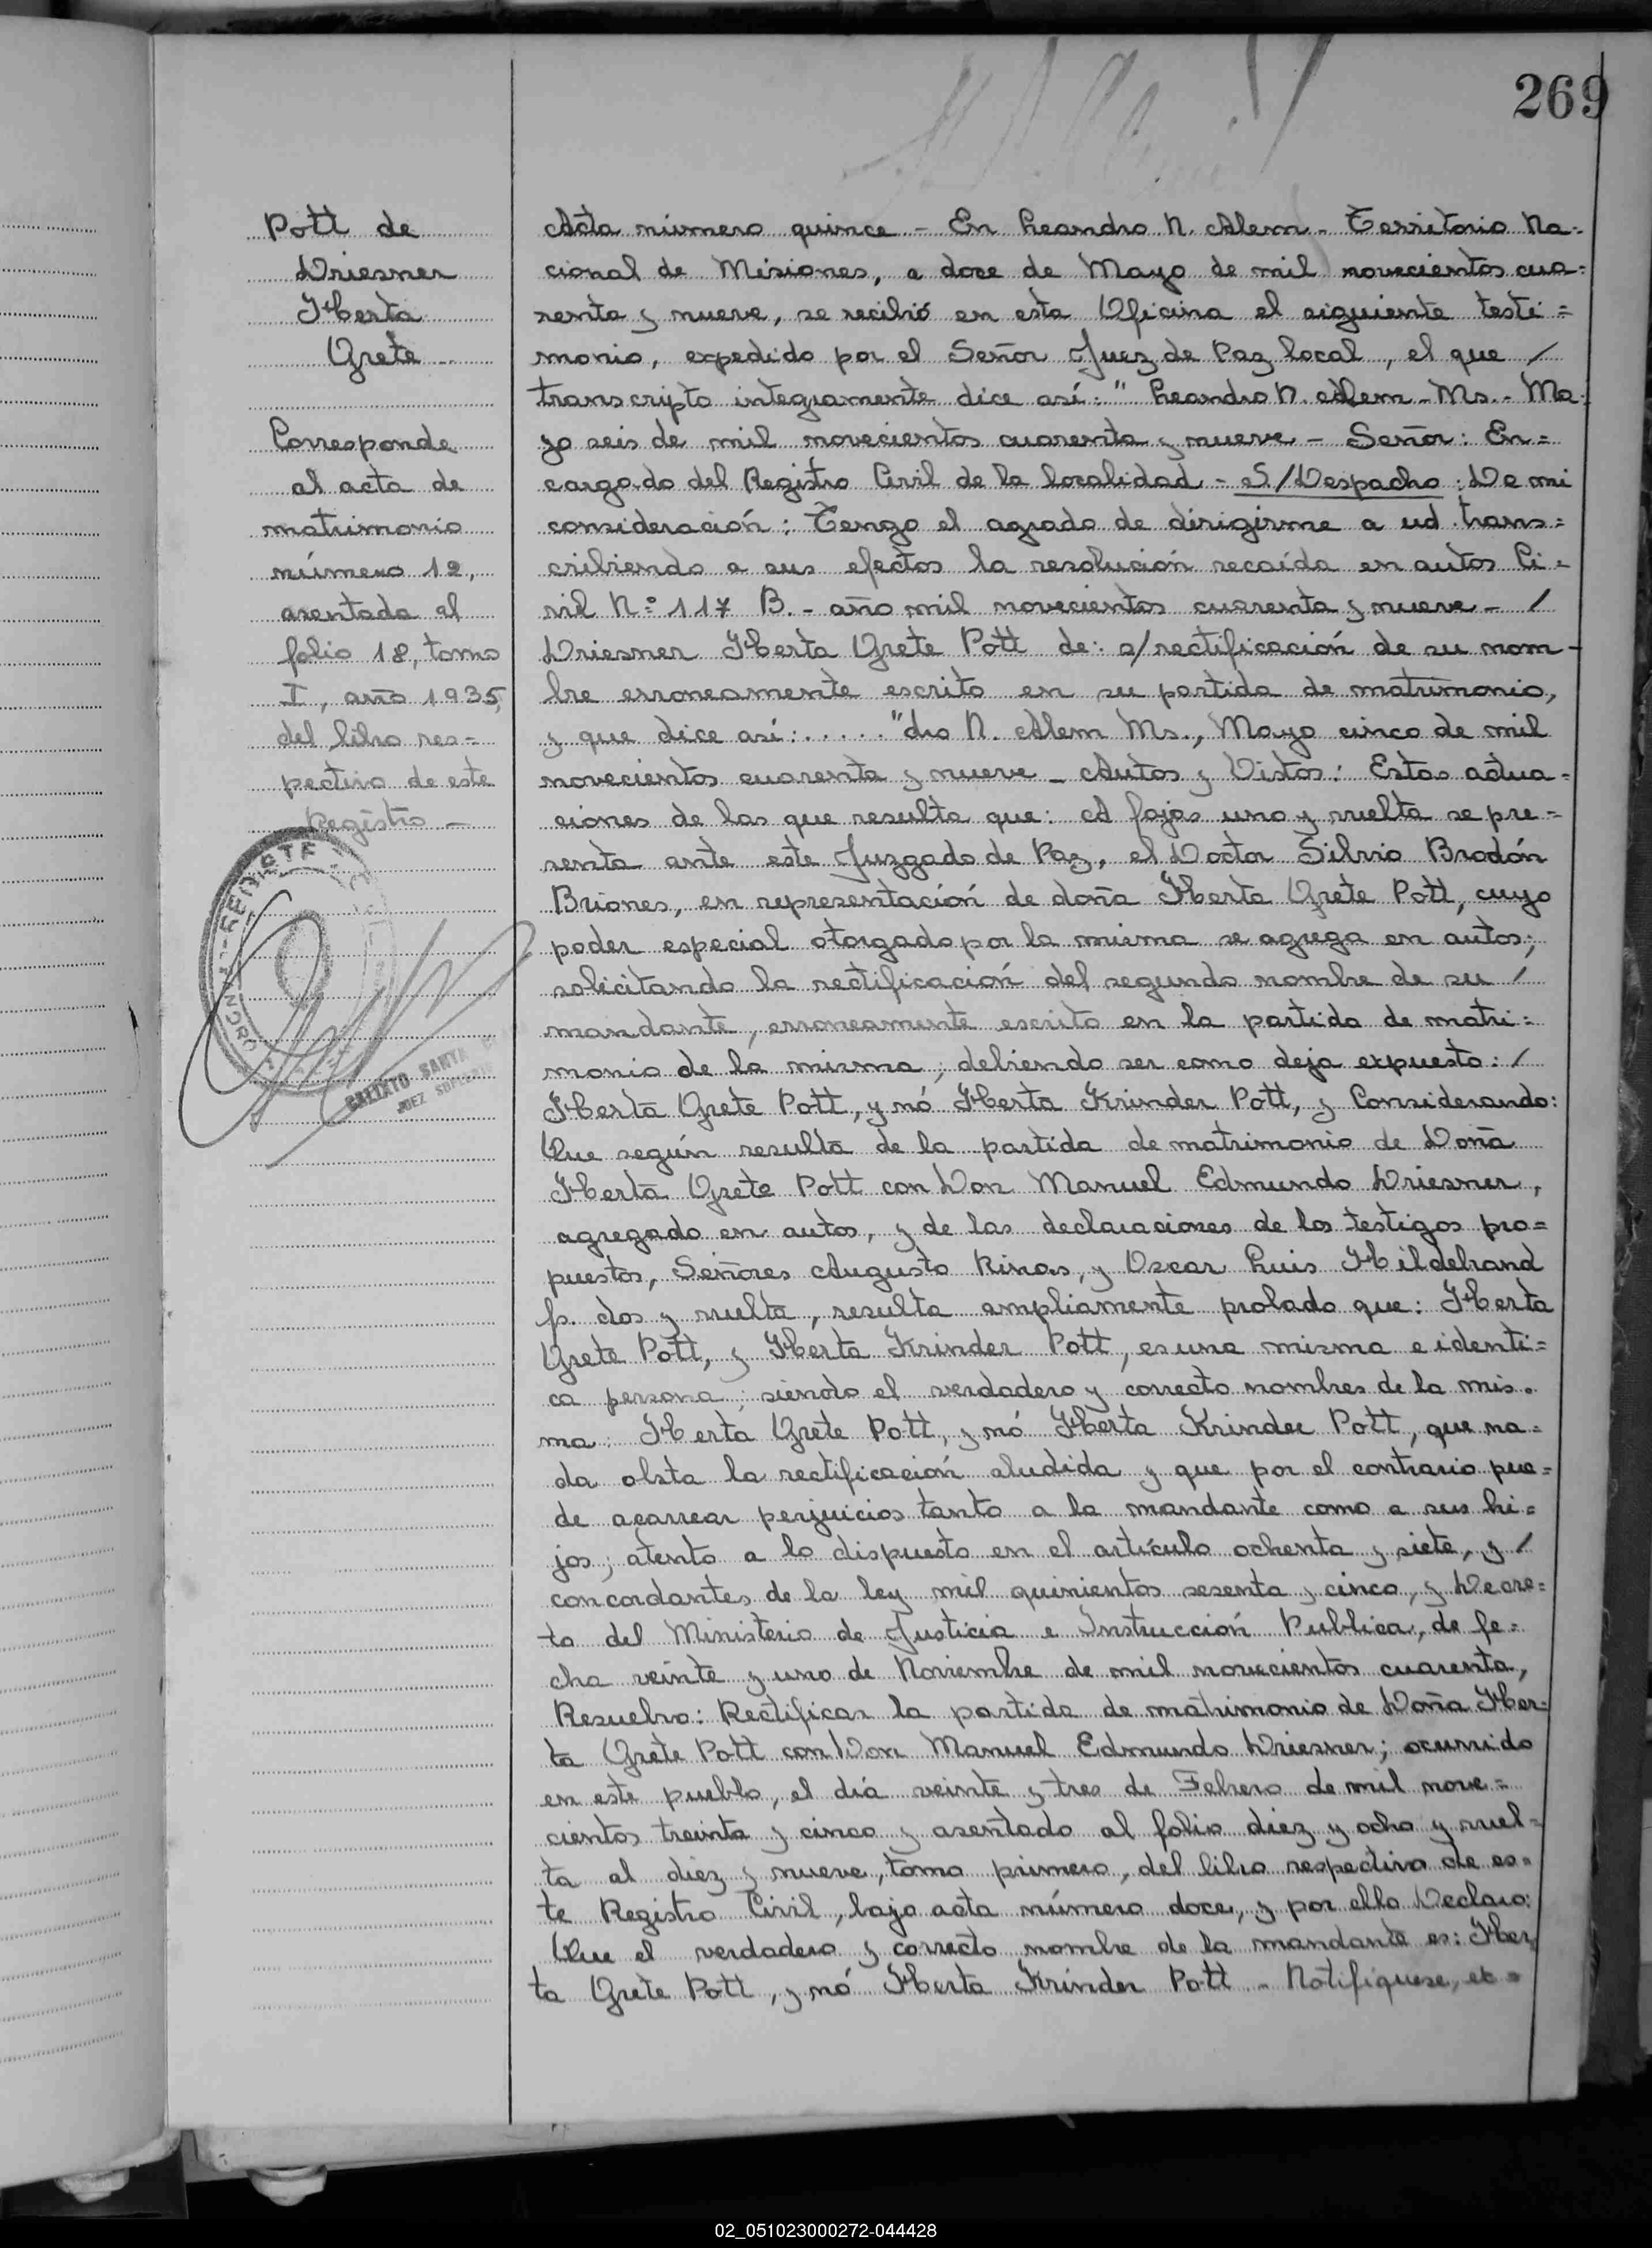 269
Pott de
Driesner
Herta
Grete
Corresponde
al acta de
matrimonio
número 12,
asentada al
folio 18, tomo
I, año 1935,
del libro res=
pectivo de este
Registro –
CALIXTO SANTA
JUEZ SUPLENTE
Acta número quince – En Leandro N. Alem – Territorio Na=
cional de Misiones, a doce de Mayo de mil novecientos cua=
renta y nueve, se recibió en esta Oficina el siguiente testi=
monio, expedido por el Señor Juez de Paz local, el que /
transcripto integramente dice así: "Leandro N. Alem – Ms. – Ma=
yo seis de mil novecientos cuarenta y nueve – Señor: En=
cargado del Registro Civil de la localidad – S/Despacho: De mi
consideración: Tengo el agrado de dirigirme a ud. trans=
cribiendo a sus efectos la resolución recaída en autos Ci=
vil N° 117 B. – año mil novecientos cuarenta y nueve – /
Driesner Herta Grete Pott de: s/rectificación de su nom=
bre erroneamente escrito en su partida de matrimonio,
y que dice así: ..... "dro N. Alem Ms., Mayo cinco de mil
novecientos cuarenta y nueve – Autos y Vistos: Estas actua=
ciones de las que resulta que: A fojas uno y vuelta se pre=
senta ante este Juzgado de Paz, el Doctor Silvio Brodón
Briones, en representación de doña Herta Grete Pott, cuyo
poder especial otorgado por la misma se agrega en autos;
solicitando la rectificación del segundo nombre de su /
mandante, erroneamente escrito en la partida de matri=
monio de la misma; debiendo ser como deja expuesto: /
Herta Grete Pott, y nó Herta Krinder Pott, y Considerando:
Que según resulta de la partida de matrimonio de Doña
Herta Grete Pott con Don Manuel Edmundo Driesner,
agregado en autos, y de las declaraciones de los testigos pro=
puestos, Señores Augusto Rinas, y Oscar Luis Hildebrand
fs. dos y vuelta, resulta ampliamente probado que: Herta
Grete Pott, y Herta Krinder Pott, es una misma e identi=
ca persona; siendo el verdadero y correcto nombres de la mis=
ma: Herta Grete Pott, y nó Herta Krinder Pott, que na=
da obsta la rectificación aludida y que por el contrario pue=
de acarrear perjuicios tanto a la mandante como a sus hi=
jos; atento a lo dispuesto en el artículo ochenta y siete, y /
concordantes de la ley mil quinientos sesenta y cinco, y Decre=
to del Ministerio de Justicia e Instrucción Publica, de fe=
cha veinte y uno de Noviembre de mil novecientos cuarenta,
Resuelvo: Rectificar la partida de matrimonio de Doña Her=
ta Grete Pott con Don Manuel Edmundo Driesner; ocurrido
en este pueblo, el día veinte y tres de Febrero de mil nove=
cientos treinta y cinco y asentado al folio diez y ocho y vuel=
ta al diez y nueve, tomo primero, del libro respectivo de es=
te Registro Civil, bajo acta número doce, y por ello Declaro:
Que el verdadero y correcto nombre de la mandante es: Her
ta Grete Pott, y nó Herta Krinder Pott – Notifíquese, ex=
02_051023000272-044428